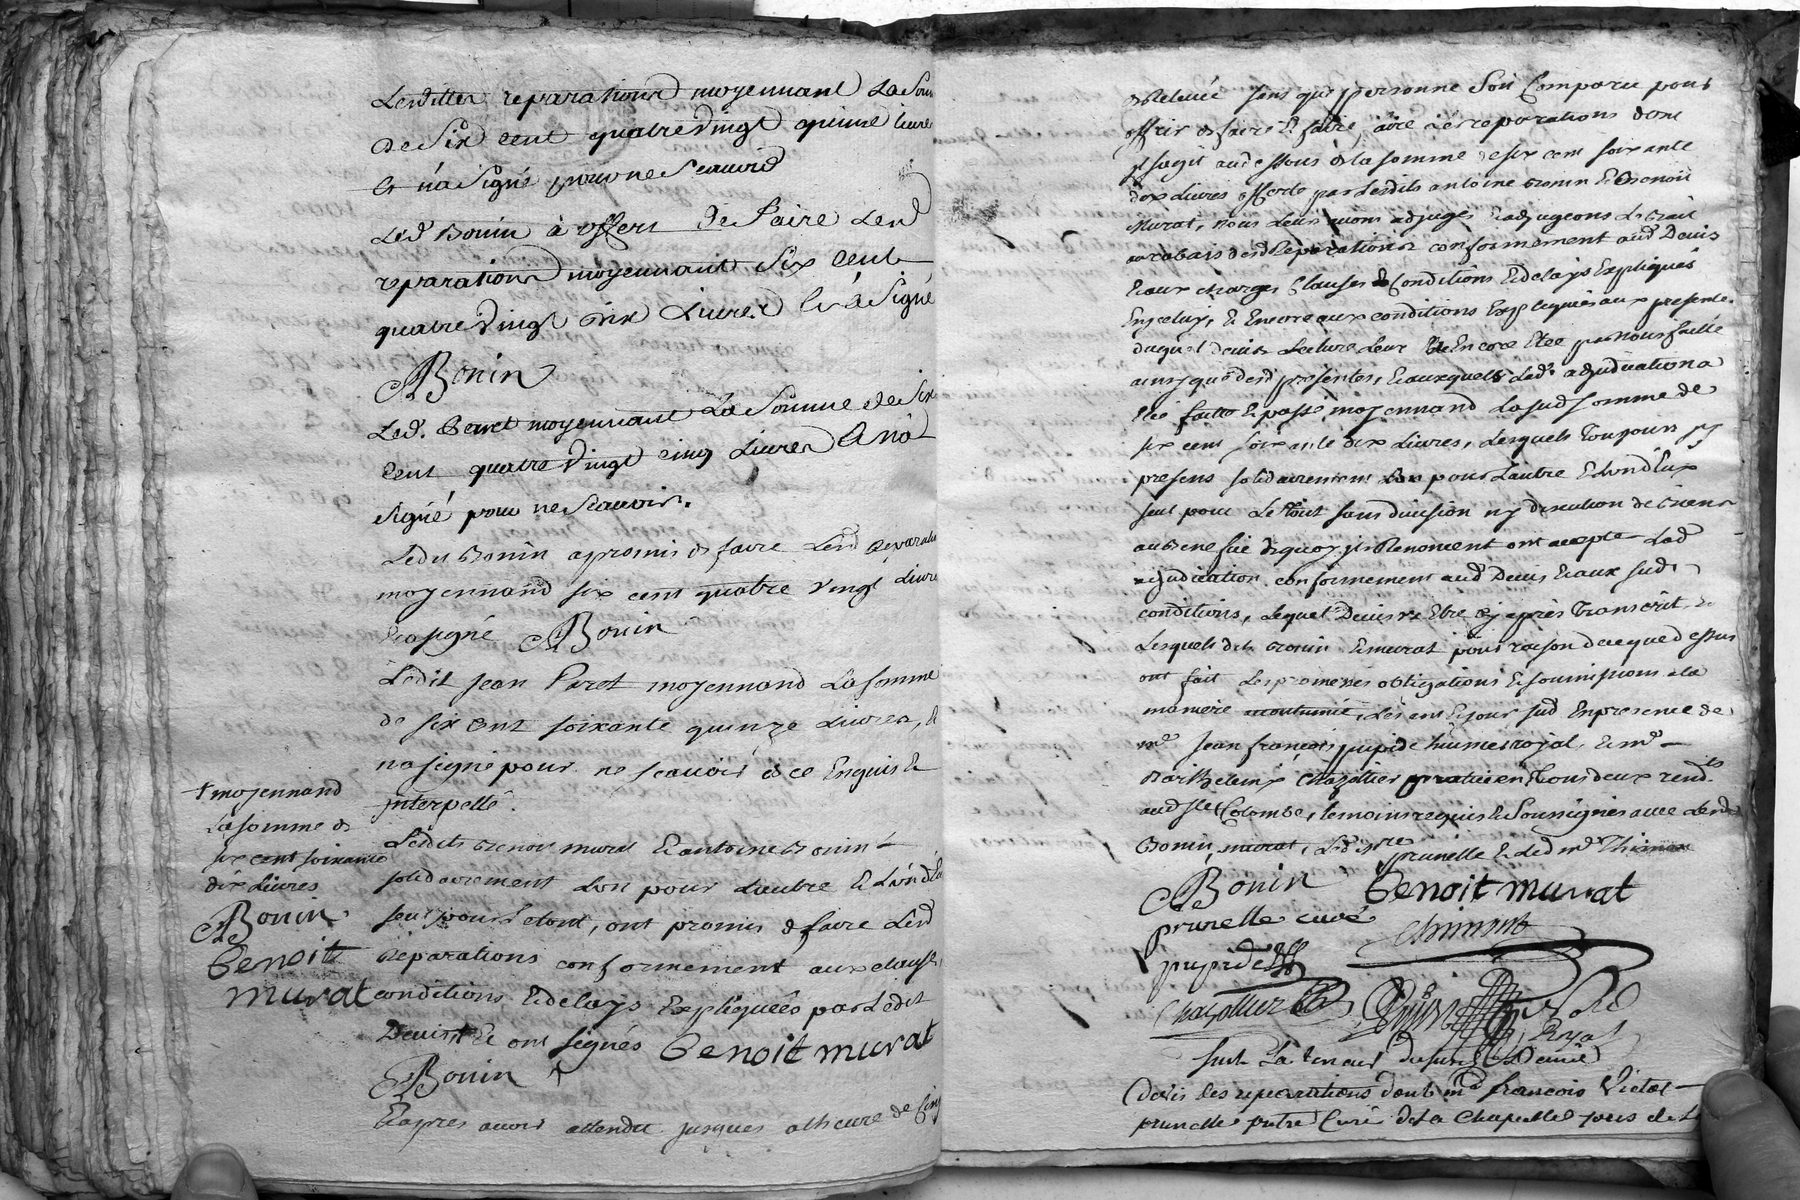 Lesdittes reparations moyennant La Som
de Six cent quatre vingt quinze livre
Et n'a Signé pour ne Scavoir
Led Bonin à offert de faire Lesd
reparations moyennant Six Cent
quatre Vingt dix Livres Et à Signé
Bonin
Led. Peret moyennant La Somme de Six
Cent quatre Vingt cinq Livres Et na
signé pour ne Scavoir.
Ledit Bonin a promis de faire Lesd reparati
moyennand six cent quatre vingt Livre
Et a signé Bonin
Ledit Jean Peret moyennand La somme
de six cent soixante quinze Livres, Et
n'a signé pour ne scavoir de ce Enquis Et
jnterpellé.
Lesdits Benoit murat Et antoine Bonin
solidairement Lun pour Lautre Et Lun d'E
seul pour Le tout, ont promis de faire Lesd
Reparations conformement aux clauses,
conditions Et delays Expliquées par Ledit
Devis + Et ont signés Benoit murat
Bonin
Et apres avoir attendu jusques a lheure de Cinq
+ moyennand
La somme de
six cent soixante
dix Livres
Bonin
Benoit
murat
de Relevée sans que personne Soit Comparu pour
offrir de faire Et faire faire Les reparations dont
s'agit au dessous de la somme de six cent soixante
dix Livres offerte par Lesdits antoine Bonin Et Benoit
Murat, nous Leurs avons adjugés Et adjugeons Le Bail
au rabais desd Reparations conformement aud Devis
Et aux charges Clauses Et Conditions Et delays Expliqués
En jceluy, Et Encore aux conditions Expliquées aux presente.
duquel devis Lecture Leur a Encore Etée par Nous faitte
ainsy que desd presentes, Et auxquels Led. adjudication a
Eté faitte Et passé moyennand La sud somme de
six cent soixante dix Livres, Lesquels Toujours jcy
presens solidairement Lun pour Lautre Et Lun d'Eux
seul pour Le Tout sans division ny discution de biens
au benefice de quoy jls Renoncent ont accepté Lad
adjudication conformement aud Devis Et aux sudes
conditions, Lequel Devis va Etre cy apres Transcrit, Et
Lesquels dits Bonin Et murat pour raison de ce que dessus
ont fait Les promesses obligations Et soumissions a la
maniere accoutumée, Les an Et jour sud En presence de
me Jean françois pupide Royal, Et me
Barthelemy Chazottier praticien Tous deux
aud Ste Colombe, temoins requis Et Soussignés avec Lesd
Bonin, murat, Led sr
prunelle Et Led me Thimon
Bonin Benoit murat
prunelle curé
pupide
Chazottier
Royal
Suit La teneur dusus Devis
Devis des reparations dont me françois Victor
prunelle pretre Curé de La Chapelle